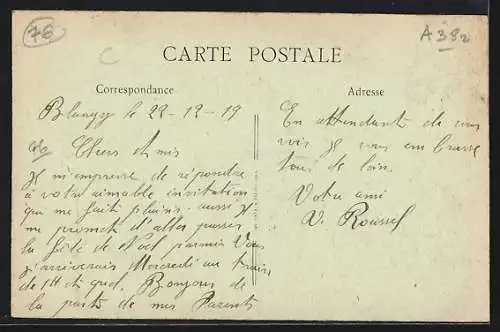 76
A 392
C
CARTE POSTALE
Correspondance
Adresse
Blangy le 22-12-19
Chers Amis
Je m'empresse de répondre
à votre aimable invitation
qui me fait plaisir. aussi je
me promet d'aller passer
la fête de Noel parmis Vous
J'arriverais Mercredi au train
de 1H et quel. Bonjour de
la part de mes Parents
En attendant de vous
voir je vous embrasse
tous de loin.
Votre ami
V. Roussel